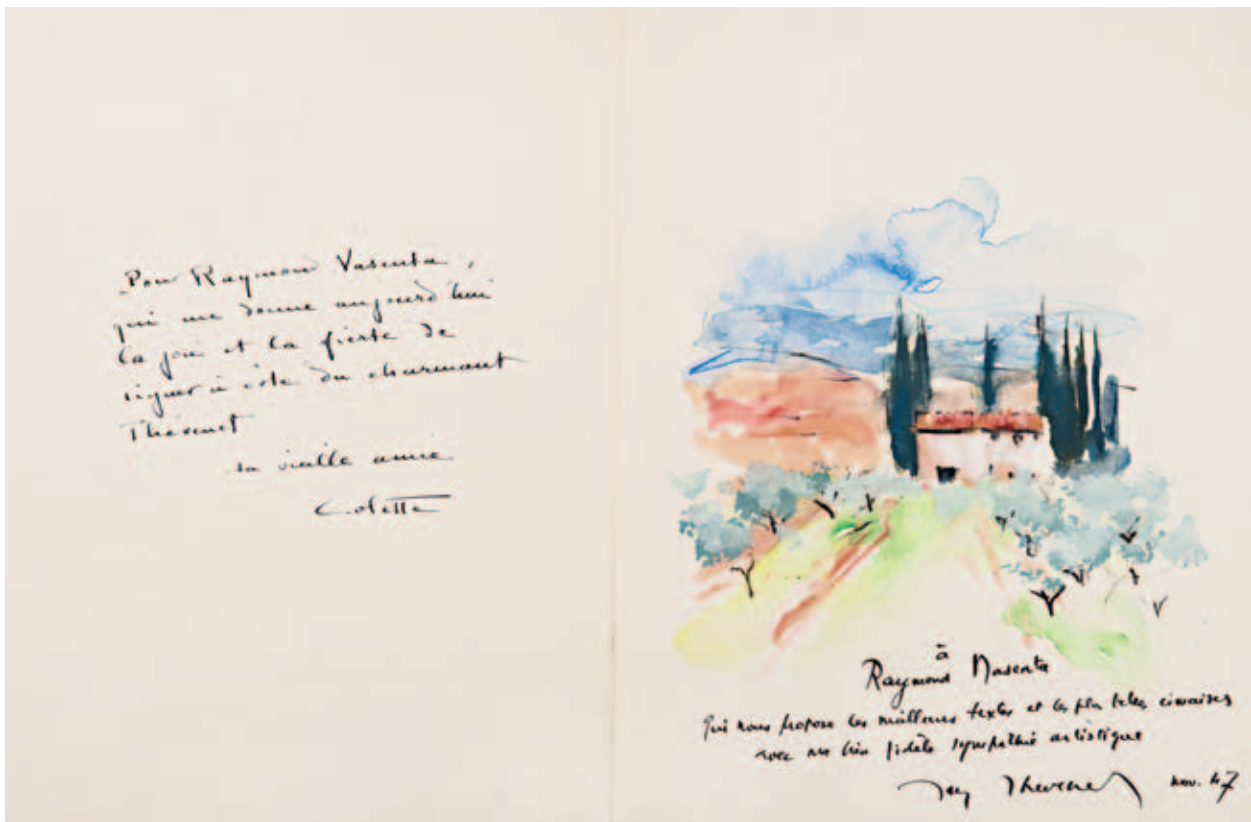 Pour Raymond Nasenta,
qui me donne aujourd'hui
la joie et la fierté de
signer à côté du charmant
Thévenet
sa vieille amie
Colette
à
Raymond Nasenta
Qui nous propose les meilleurs textes et les plus belles cimaises
avec ma bien fidèle sympathie artistique
Jacques Thévenet nov. 47